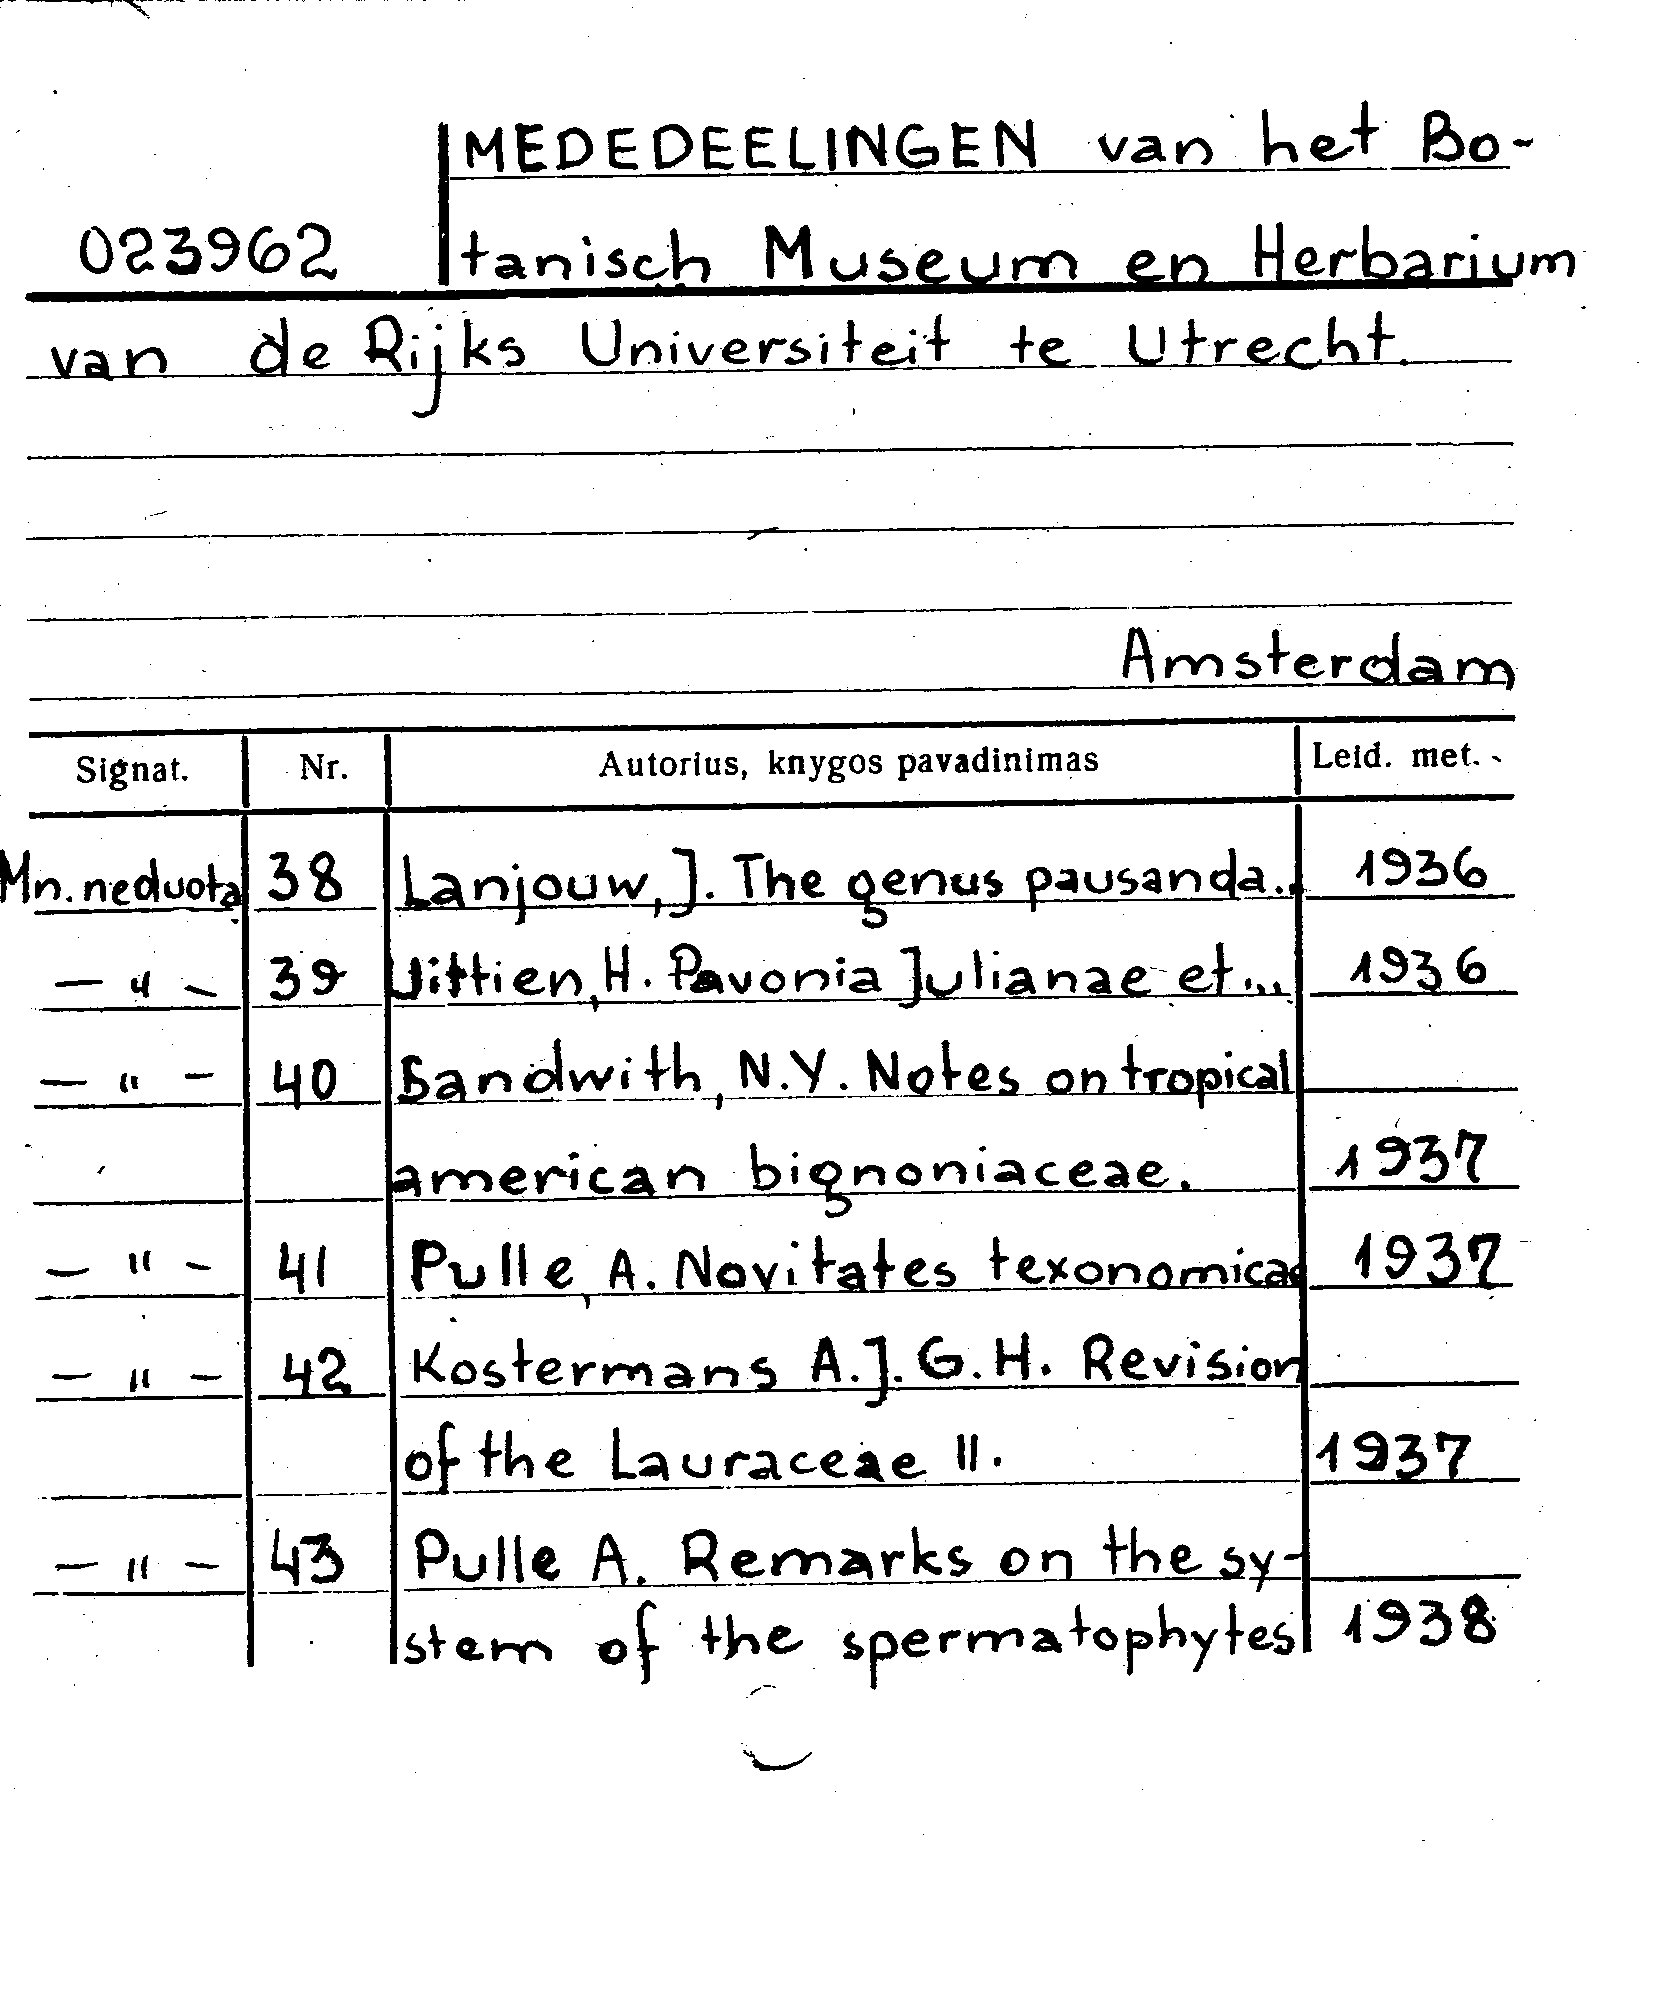 MEDEDEELINGEN van het Bo-
023962 tanisch Museum en Herbarium
van de Rijks Universiteit te Utrecht.
Amsterdam
Signat. Nr. Autorius, knygos pavadinimas Leid. met.
Mn. neduota 38 Lanjouw, J. The genus pausanda... 1936
— " — 39 Uittien, H. Pavonia Julianae et... 1936
— " — 40 Sandwith, N.Y. Notes on tropical
american bignoniaceae. 1937
— " — 41 Pulle, A. Novitates texonomicae 1937
— " — 42 Kostermans A.J.G.H. Revision
of the Lauraceae II. 1937
— " — 43 Pulle A. Remarks on the sy-
stem of the spermatophytes 1938